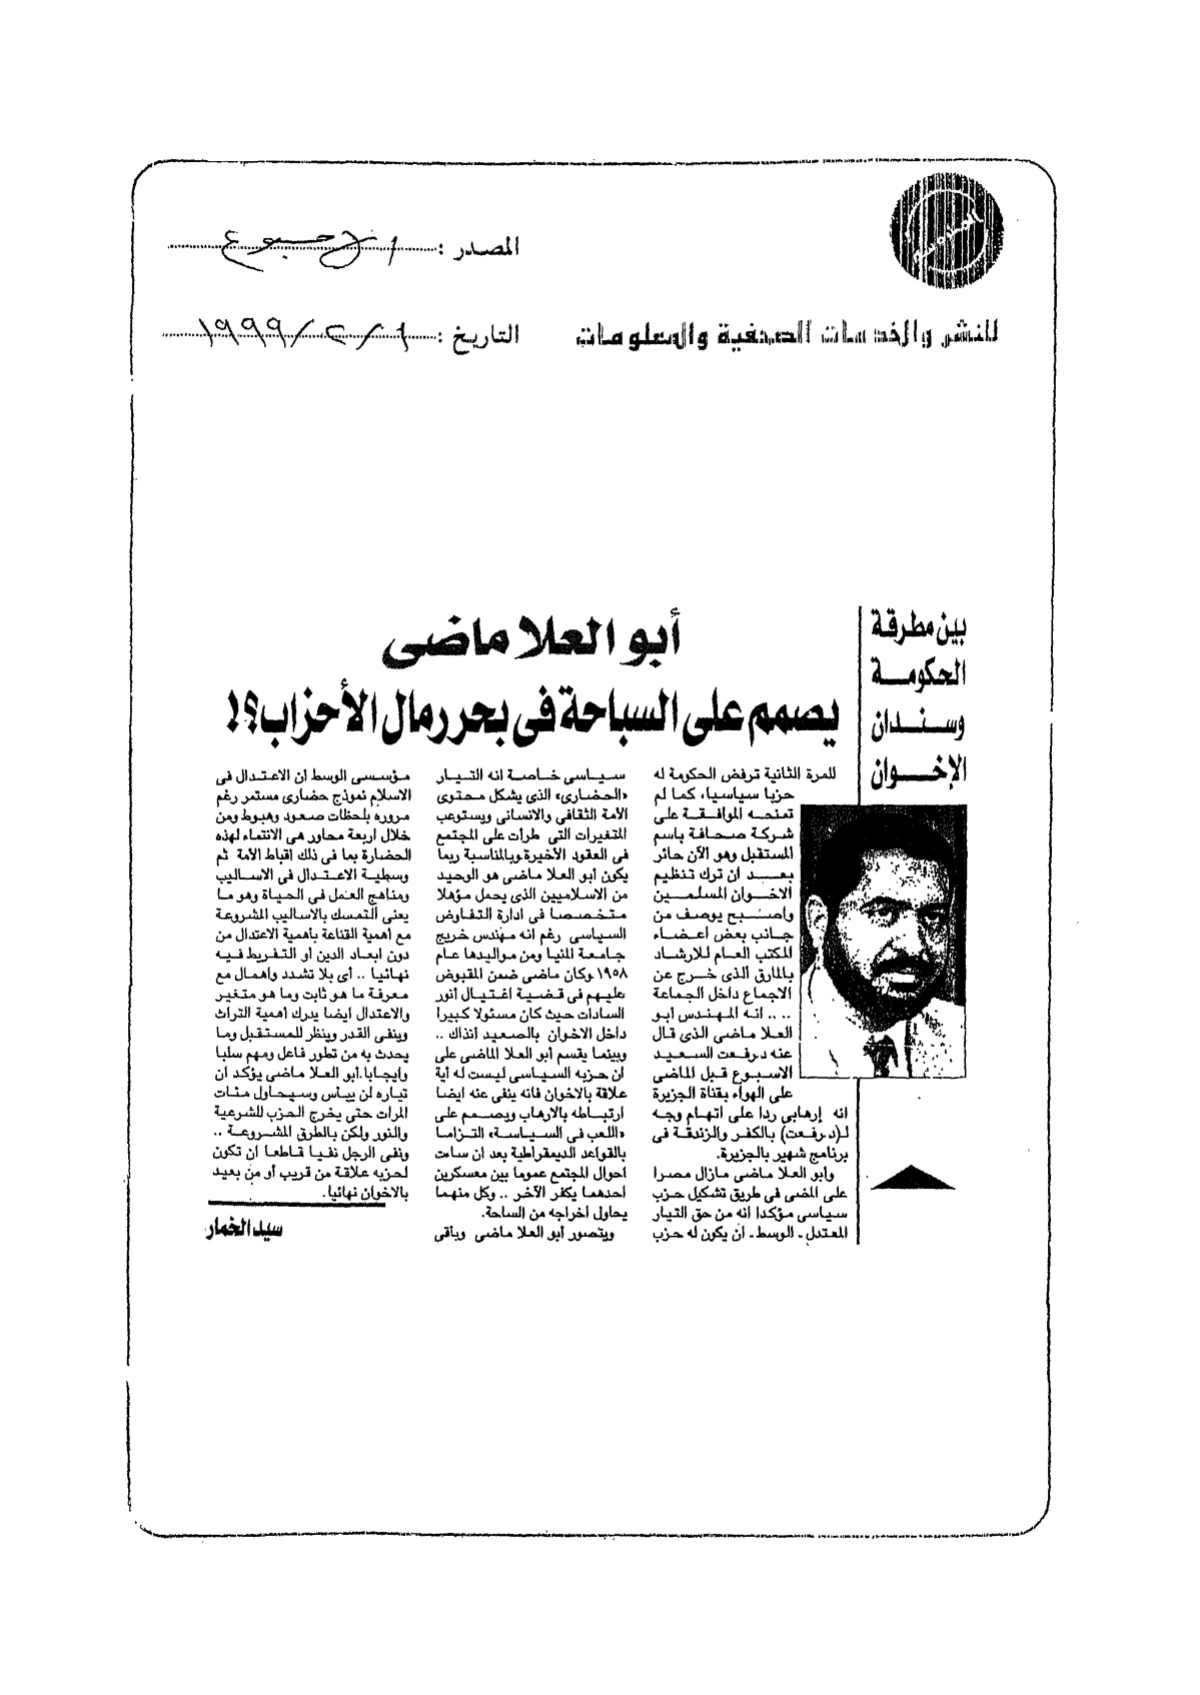 المصدر : الاسبوع
للنشر والخدمات الصحفية والمعلومات
التاريخ : ١ / ٢ / ١٩٩٩
بين مطرقة
الحكومة
وسندان
الإخوان
أبو العلا ماضى
يصمم على السباحة فى بحر رمال الأحزاب؟!
للمرة الثانية ترفض الحكومة له
حزبا سياسيا، كما لم
تمنحه الموافقة على
شركة صحافة باسم
المستقبل وهو الآن حائر
بعد ان ترك تنظيم
الاخوان المسلمين
واصبح يوصف من
جانب بعض اعضاء
المكتب العام للارشاد
بالمارق الذى خرج عن
الاجماع داخل الجماعة
.. .. انه المهندس ابو
العلا ماضى الذى قال
عنه د.رفعت السعيد
الاسبوع قبل الماضى
على الهواء بقناة الجزيرة
انه إرهابى ردا على اتهام وجه
لـ(د.رفعت) بالكفر والزندقة فى
برنامج شهير بالجزيرة.
وابو العلا ماضى مازال مصرا
على المضى فى طريق تشكيل حزب
سياسى مؤكدا انه من حق التيار
المعتدل ـ الوسط ـ أن يكون له حزب
سياسى خاصة انه التيار
«الحضارى» الذى يشكل محتوى
الأمة الثقافى والانسانى ويستوعب
المتغيرات التى طرأت على المجتمع
فى العقود الأخيرة.وبالمناسبة ربما
يكون أبو العلا ماضى هو الوحيد
من الاسلاميين الذى يحمل مؤهلا
متخصصا فى ادارة التفاوض
السياسى رغم انه مهندس خريج
جامعة المنيا ومن مواليدها عام
١٩٥٨ وكان ماضى ضمن المقبوض
عليهم فى قضية اغتيال أنور
السادات حيث كان مسئولا كبيرا
داخل الاخوان بالصعيد آنذاك ..
وبينما يقسم أبو العلا الماضى على
ان حزبه السياسى ليست له أية
علاقة بالاخوان فانه ينفى عنه ايضا
ارتباطه بالارهاب ويصمم على
«اللعب فى السياسة» التزاما
بالقواعد الديمقراطية بعد ان ساءت
احوال المجتمع عموما بين معسكرين
احدهما يكفر الآخر .. وكل منهما
يحاول اخراجه من الساحة.
ويتصور أبو العلا ماضى وباقى
مؤسسى الوسط ان الاعتدال فى
الاسلام نموذج حضارى مستمر رغم
مروره بلحظات صعود وهبوط ومن
خلال اربعة محاور هى الانتماء لهذه
الحضارة بما فى ذلك اقباط الأمة ثم
وسطية الاعتدال فى الاساليب
ومناهج العمل فى الحياة وهو ما
يعنى التمسك بالاساليب المشروعة
مع أهمية القناعة بأهمية الاعتدال من
دون ابعاد الدين أو التفريط فيه
نهائيا .. أى بلا تشدد واهمال مع
معرفة ما هو ثابت وما هو متغير
والاعتدال ايضا يدرك اهمية التراث
وينفى القدر وينظر للمستقبل وما
يحدث به من تطور فاعل ومهم سلبا
وايجابا.ابو العلا ماضى يؤكد ان
تياره لن ييأس وسيحاول مئات
المرات حتى يخرج الحزب للشرعية
والنور ولكن بالطرق المشروعة ..
ونفى الرجل نفيا قاطعا ان تكون
لحزبه علاقة من قريب أو من بعيد
بالاخوان نهائيا.
سيد الخمار